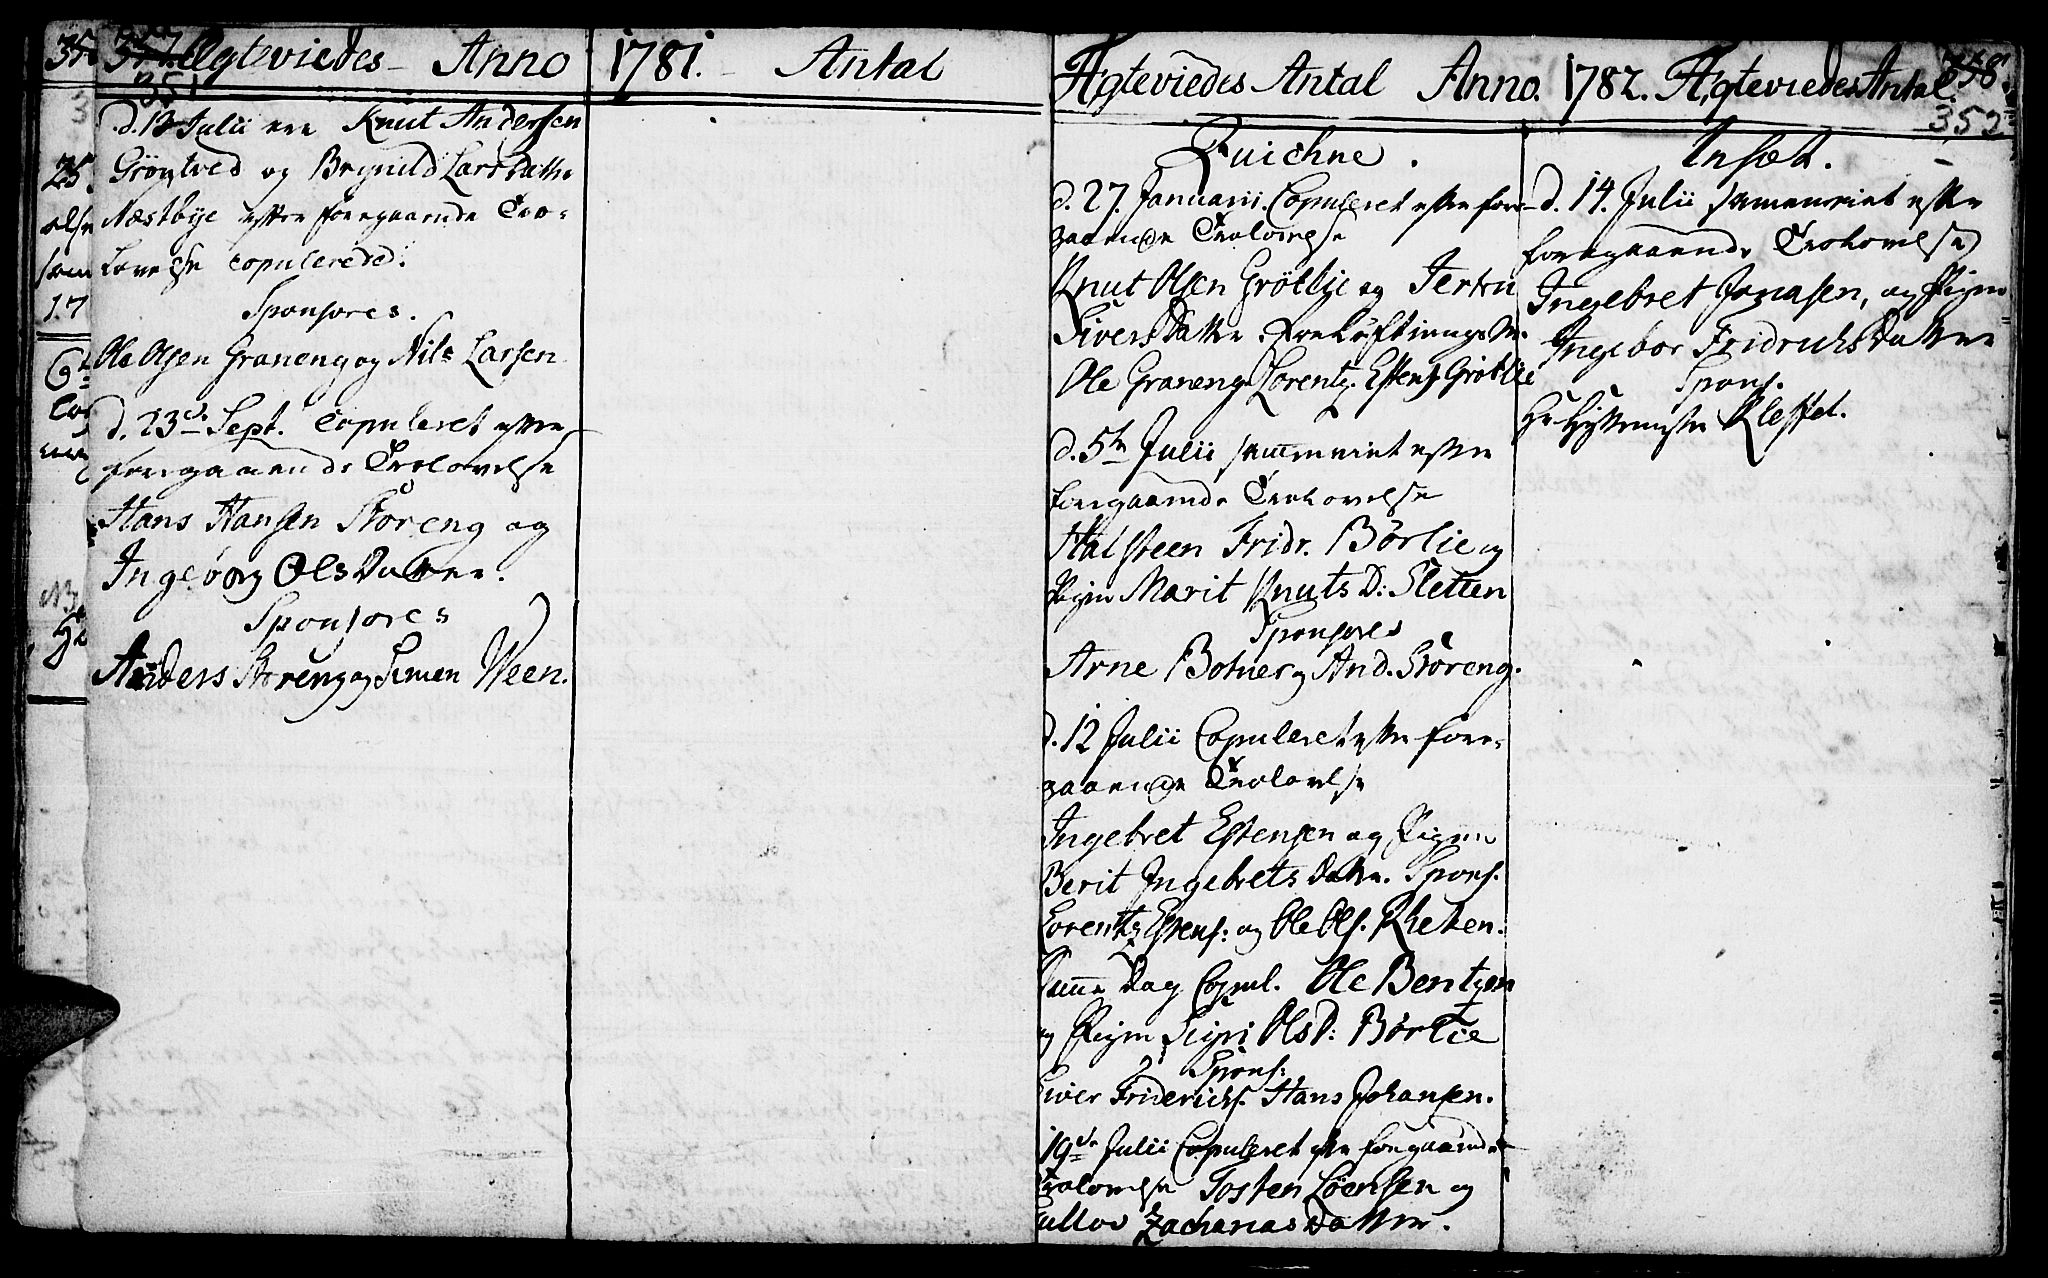 Ægteviedes - Anno 1781. - Antal
351
d. 13 Julii ere Knut Andersen
Grøntved og Brynild Larsdatter
Næstbye efter foregaaende Tro-
lovelse copulerede.
Sponsores.
Ole Olsen Graneng og Nils Larsen
d. 23de Sept. Copuleret efter
foregaaende Trolovelse
Hans Hansen Storeng og
Ingebørg OlsDatter.
Sponsores
Anders Storeng og Simen Ween.
Ægteviedes Antal Anno. 1782. Ægteviedes Antal. 358.
352
Quichne.
d. 27. Januarii. Copuleret efter fore-
gaaende Trolovelse
Knut Olsen Grötlie og Jertru
SiversDatter
Ole Graneng Lorentz Estens. Grötlie
d. 5te Julii sammenviet efter
foregaaende Trolovelse
Halsteen Fridr. Börlie og
Pigen Marit Knuts D: Sletten
Sponsores
Arne Botner og And. Storeng.
d. 12 Julii Copuleret efter fore-
gaaende Trolovelse
Ingebret Estensen og Pigen
Berit Ingebrets Datter. Spons.
Lorentz Estens: og Ole Ols. Rheten.
Samme Dag Copul. Ole Bentzen
og Pigen Sigri Ols D: Börlie
Spons:
Siver Friderichs. Hans Johansen.
19de Julii Copuleret efter foregaaende
Trolovelse Tosten Löensen og
Gullov ZachariasDatter.
Inset.
d. 14. Julii sammenviet efter
foregaaende Trolovelse
Ingebret Jonasen, og Pigen
Ingebor FridrichsDatter
Spons.
Hr Hyttemester Kleffel.